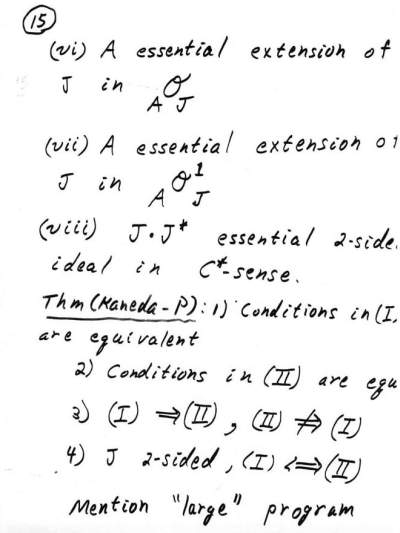 15
(vi) A essential extension of
J in
A O J
(vii) A essential extension of
J in A O¹ J
(viii) J·J* essential 2-side
ideal in C*-sense.
Thm (Kaneda-P): 1) Conditions in (I,
are equivalent
2) Conditions in (II) are equ
3) (I) ⇒ (II), (II) ⇏ (I)
4) J 2-sided, (I) ⟺ (II)
Mention "large" program